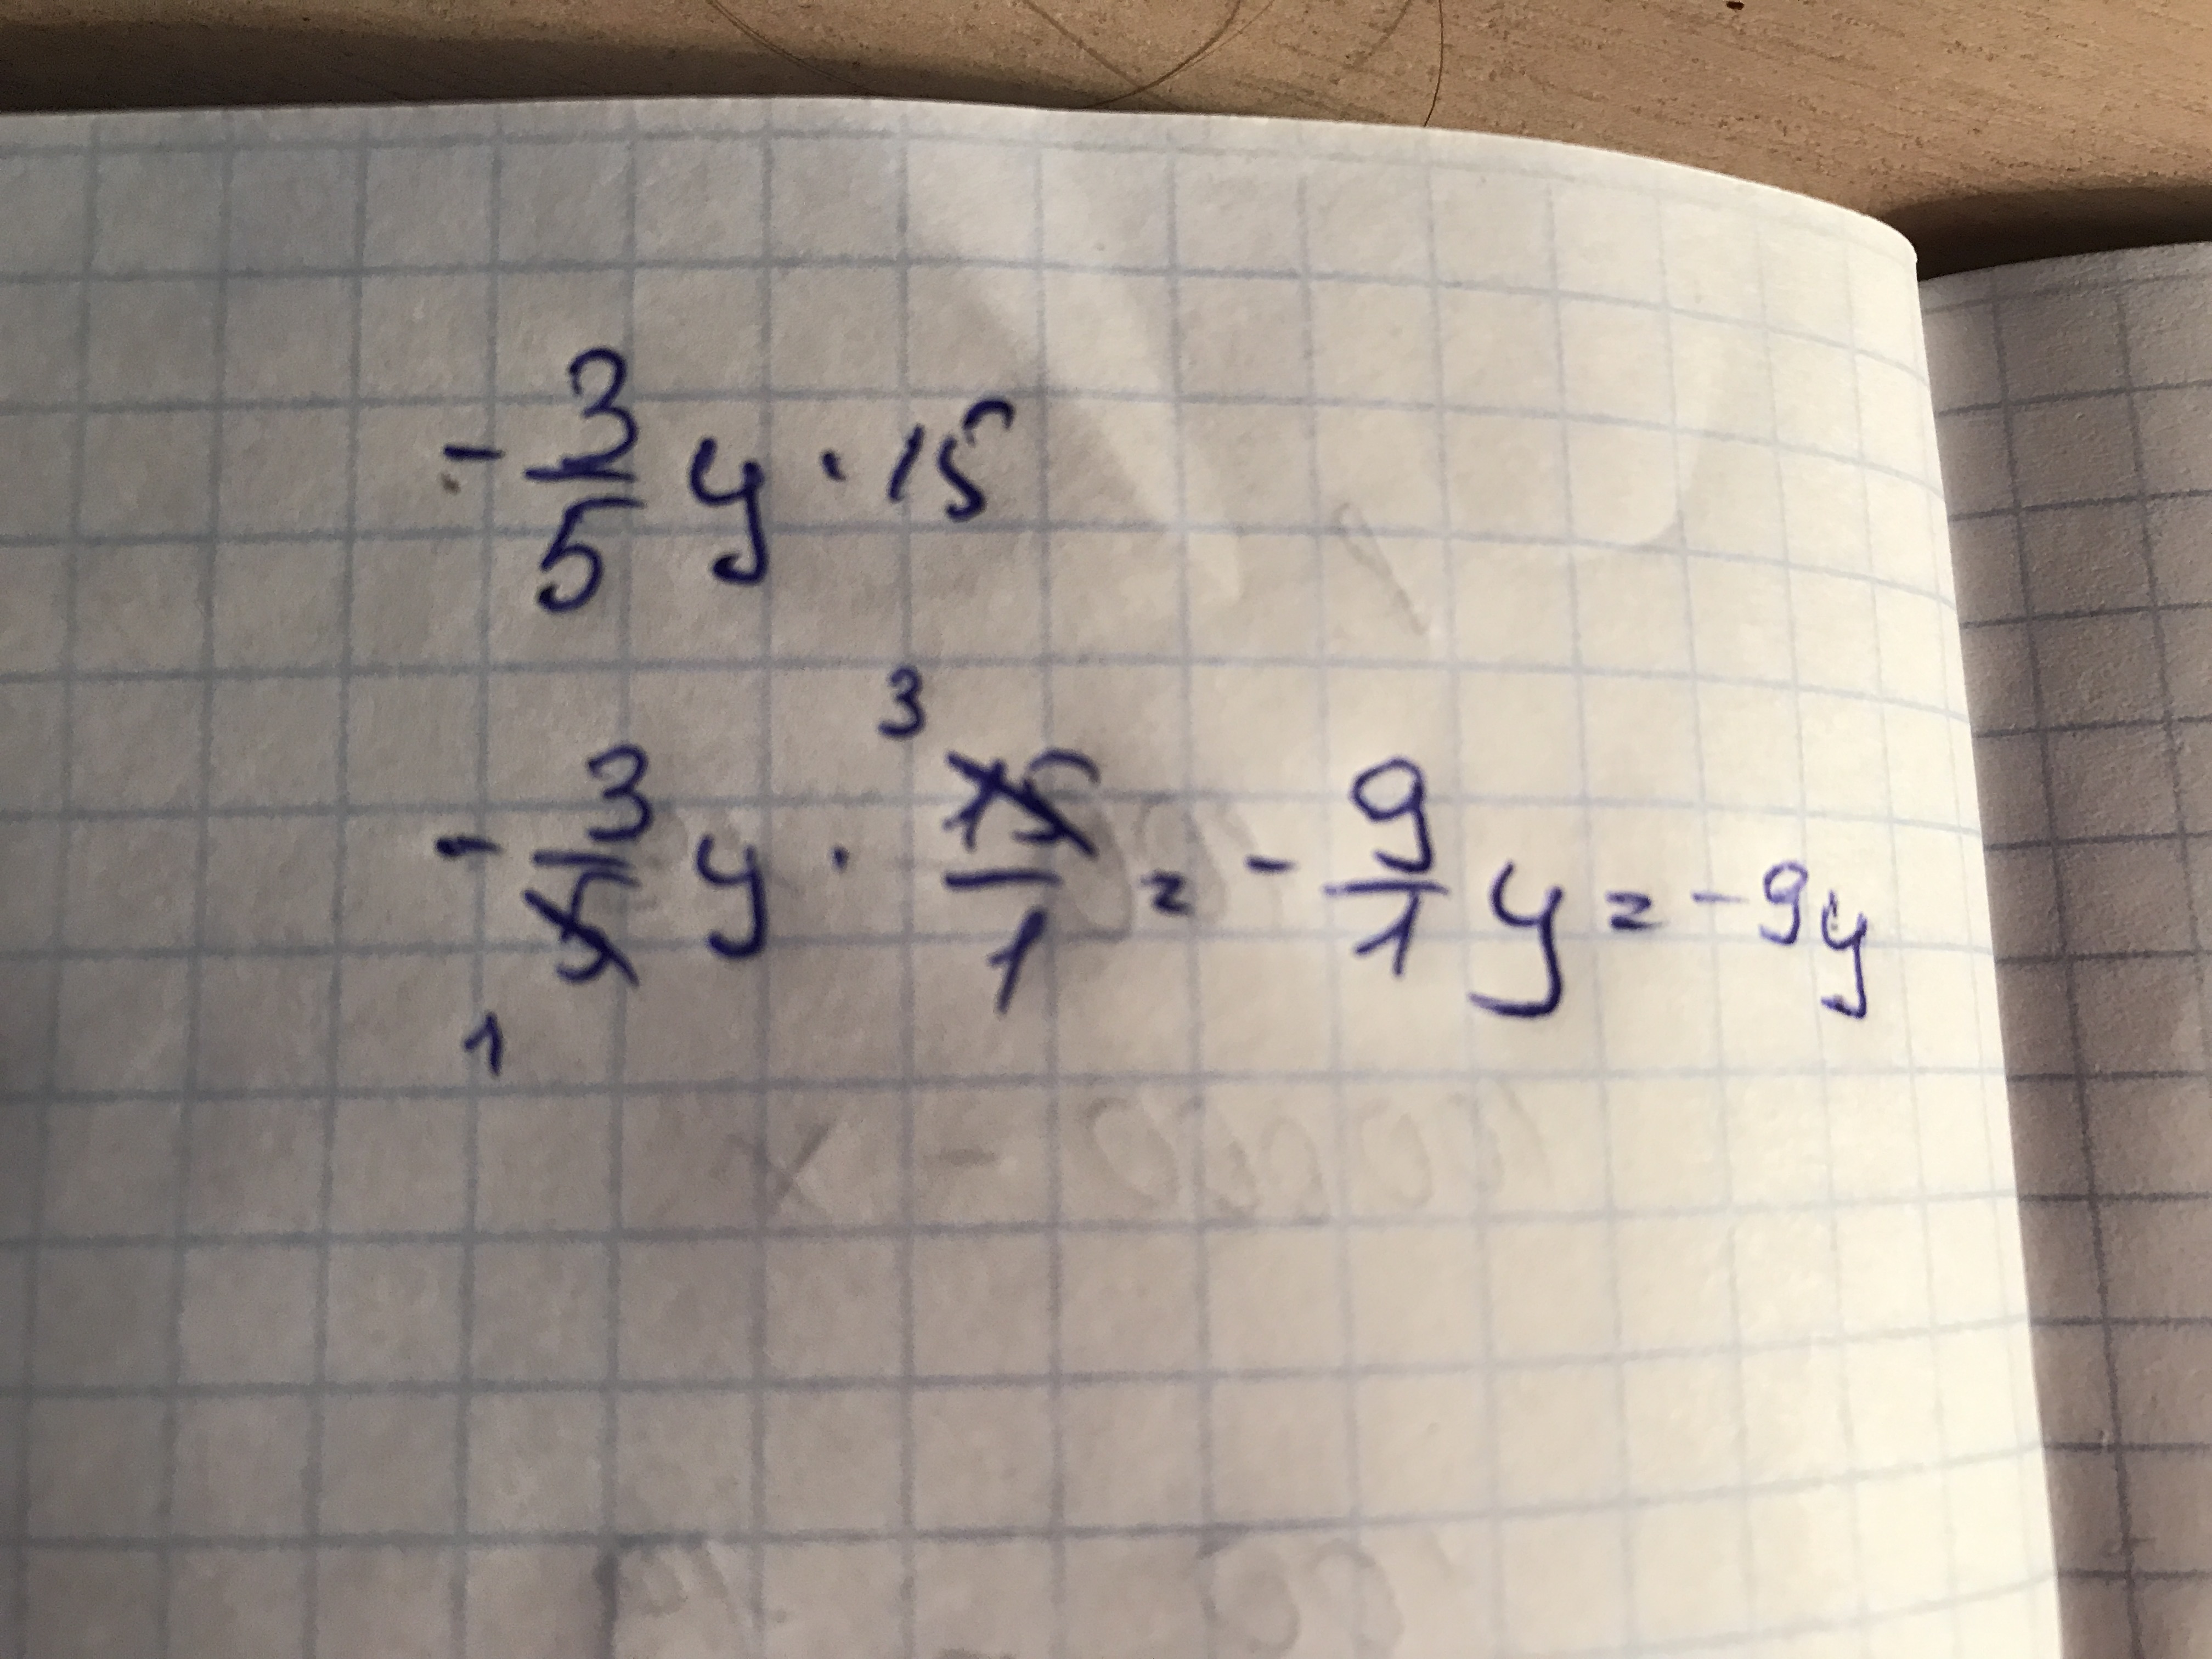 - 3/5 y · 15
- 3/5 y · 15/1 = - 9/1 y = -9y
3
1